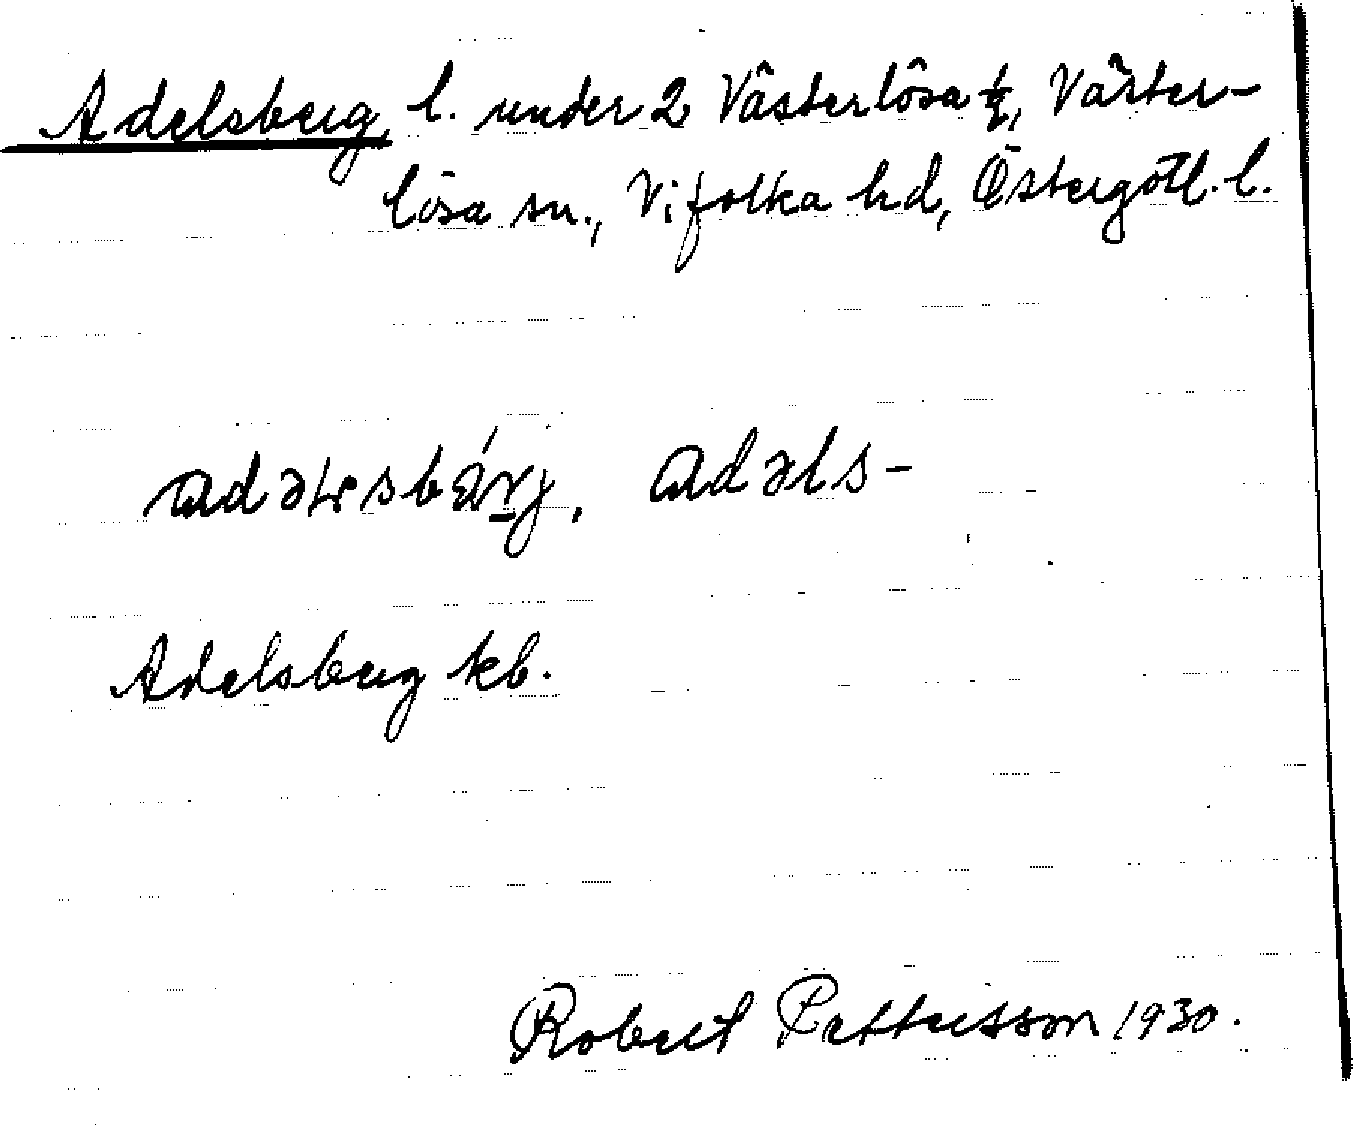 Adelsberg, l. under 2 Västerlösa ½, Väster-
lösa sn., Vifolka hd, Östergötl. l.
adəɫsbärj, adəls-
Adelsberg kb.
Robert Pettersson 1930.